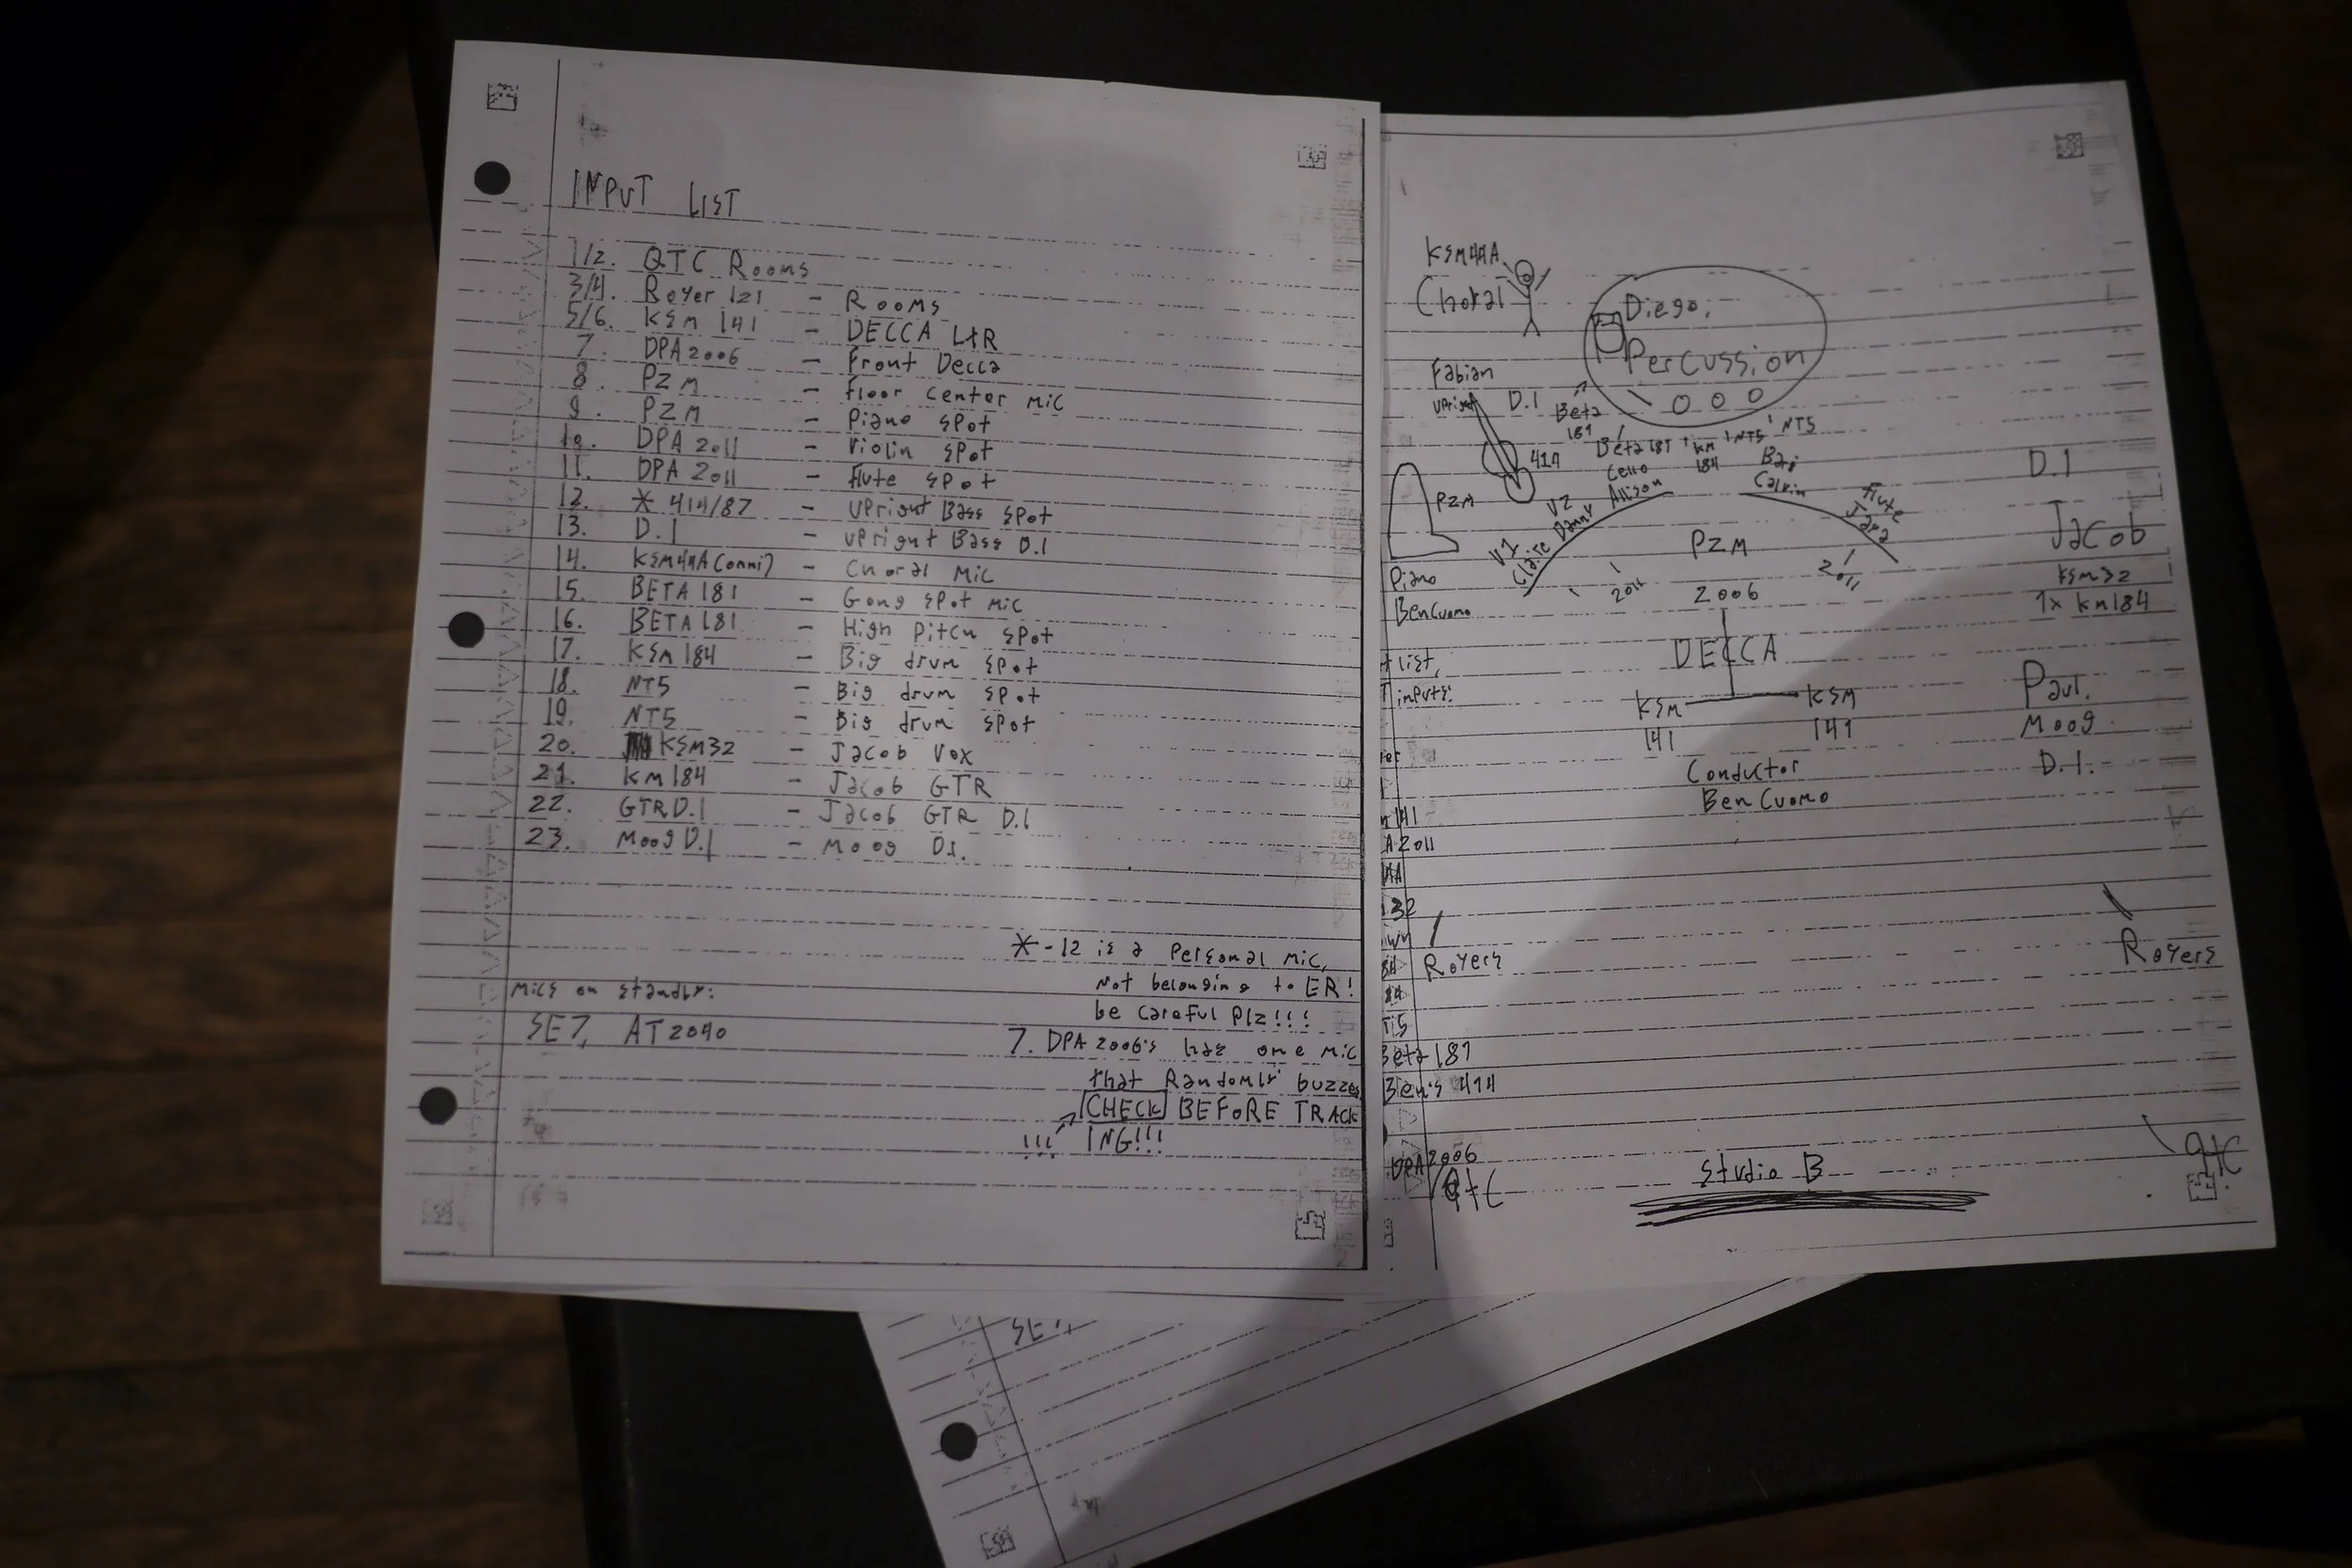 INPUT LIST
1/2. QTC Rooms
3/4. Royer 121 - Rooms
5/6. KSM 141 - DECCA L+R
7. DPA 2006 - Front Decca
8. PZM - Floor Center Mic
9. PZM - Piano Spot
10. DPA 2011 - Violin Spot
11. DPA 2011 - Flute Spot
12. * 414/87 - Upright Bass Spot
13. D.I - Upright Bass D.I
14. KSM44A (omni) - Choral Mic
15. BETA 181 - Gong Spot Mic
16. BETA 181 - High Pitch Spot
17. KSM 184 - Big drum Spot
18. NT5 - Big drum Spot
19. NT5 - Big drum Spot
20. KSM32 - Jacob Vox
21. KM184 - Jacob GTR
22. GTR D.I - Jacob GTR D.I
23. Moog D.I - Moog D.I.
* - 12 is a Personal Mic,
Not belonging to ER!
be careful Plz!!!
Mics on Standby:
SE7, AT2040
7. DPA 2006's has one mic
that Randomly buzzes
CHECK BEFORE TRACK
!!! ING!!!
KSM44A
Choral
Diego:
Percussion
Fabian
Upright D.I
Beta
181
Beta 181 KM 184 NT5 NT5
414
PZM
Piano
Ben Cuomo
V1
Claire
V2
Danny
Cello
Allison
Bari
Calvin
Flute
Jara
PZM
2011
2006
2011
DECCA
KSM
141
KSM
141
Conductor
Ben Cuomo
D.I
Jacob
KSM32
1x KM184
Paul
Moog
D.I.
t list,
inputs:
141
A 2011
32
Royers
Royers
Beta 181
Ben's 414
DPA 2006
qtc
Studio B
qtc
SE7,